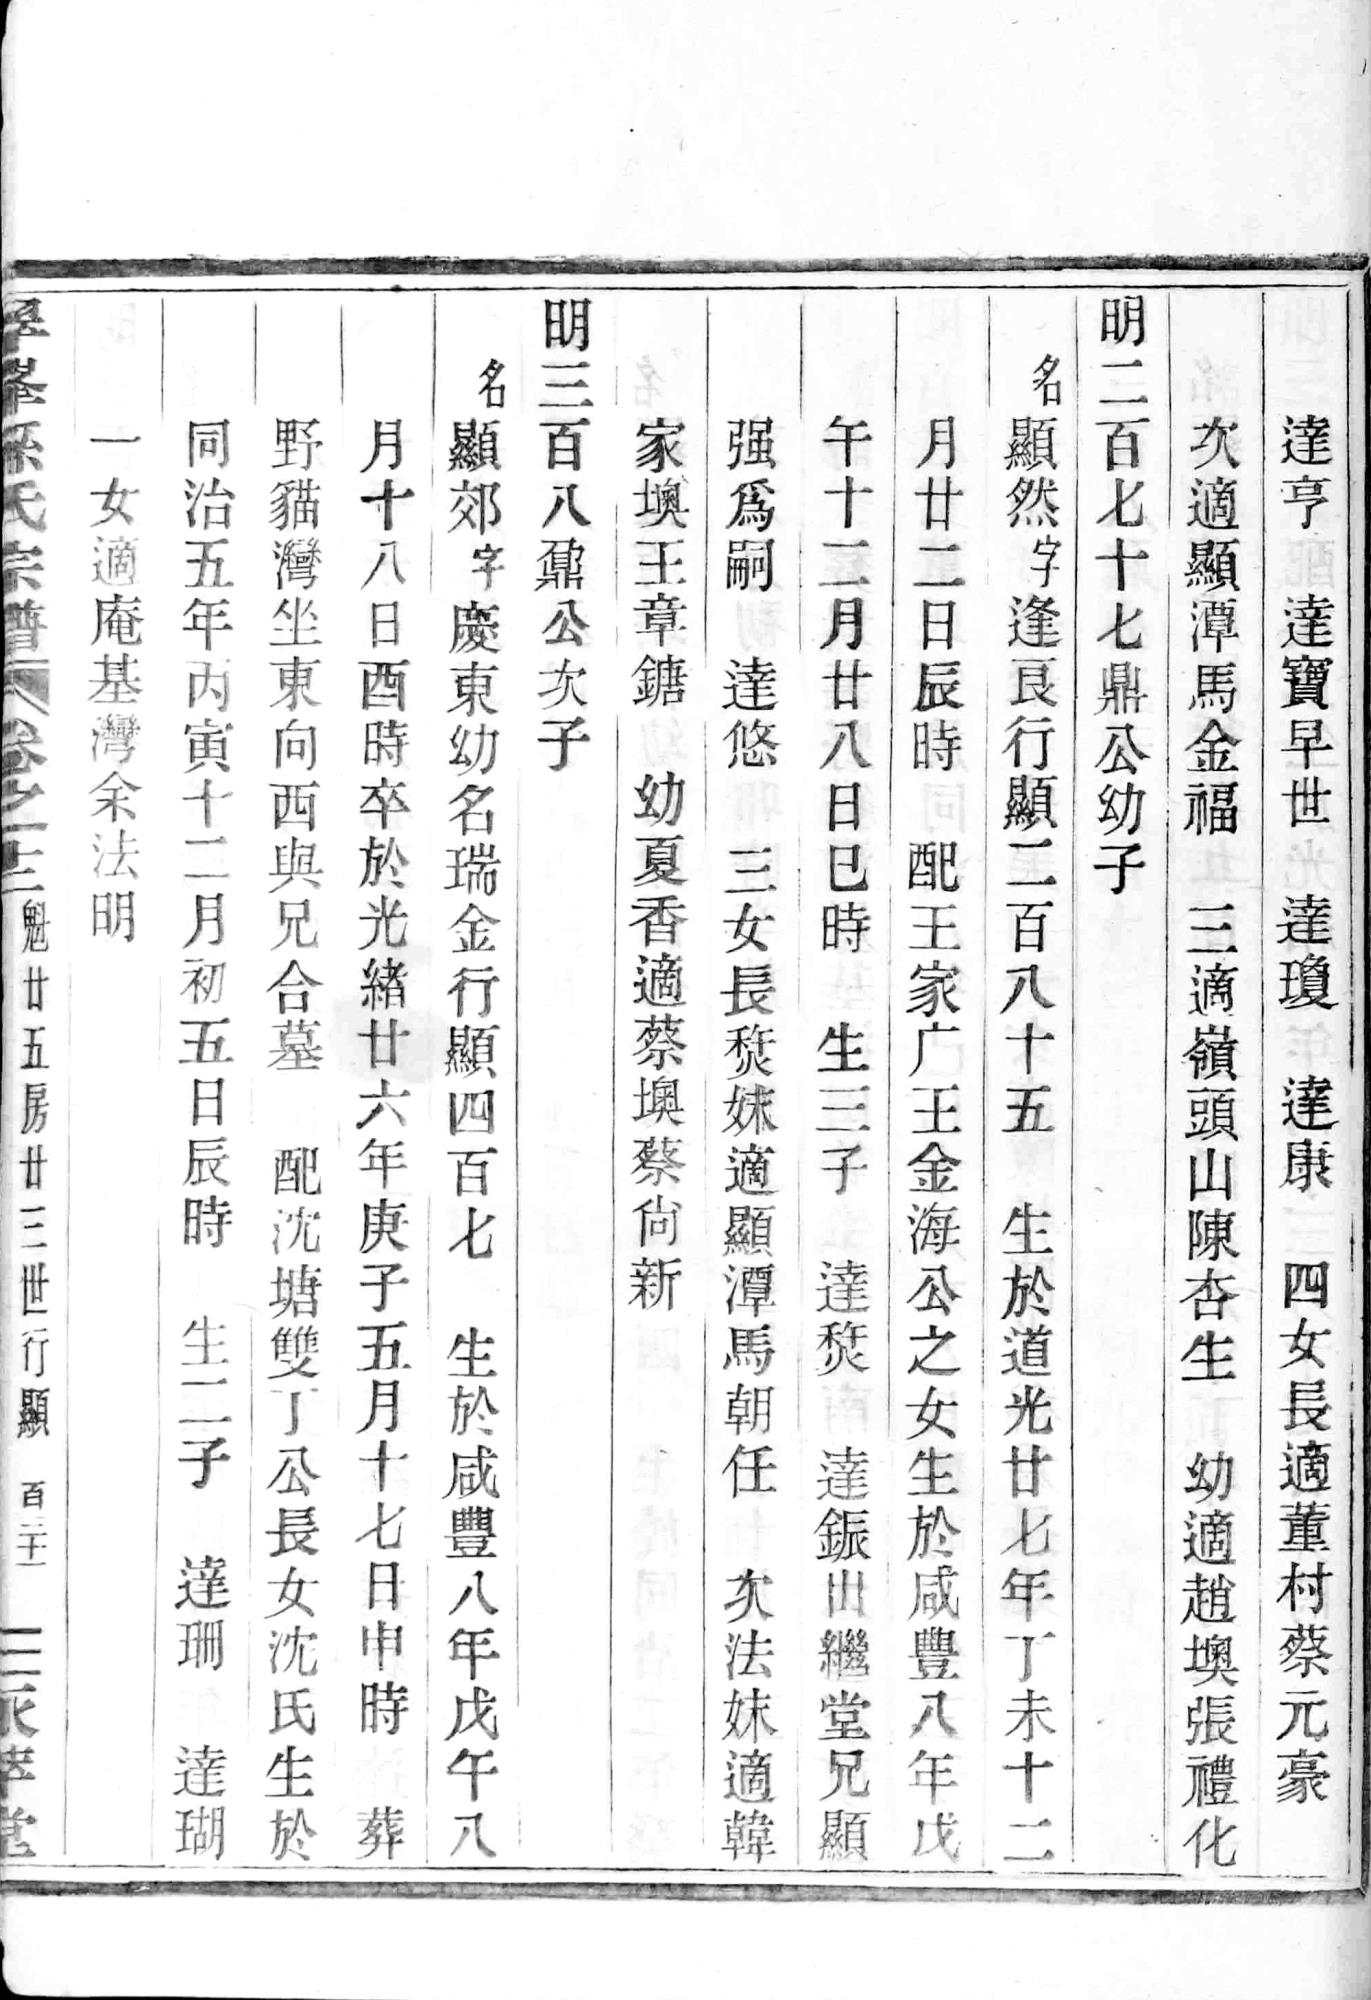 達亨　達寶早世　達瓊　達康　四女長適董村蔡元豪
次適顯潭馬金福　三適嶺頭山陳杏生　幼適趙墺張禮化
明二百七十七鼎公幼子
名顯然字逢艮行顯二百八十五　生於道光廿七年丁未十二
月廿二日辰時　配王家广王金海公之女生於咸豐八年戊
午十二月廿八日巳時　生三子　達烎　達鋠出繼堂兄顯
强爲嗣　達悠　三女長烎妹適顯潭馬朝任　次法妹適韓
家墺王章鎕　幼夏香適蔡墺蔡尙新
明三百八鼐公次子
名顯郊字慶東幼名瑞金行顯四百七　生於咸豐八年戊午八
月十八日酉時卒於光緒廿六年庚子五月十七日申時　葬
野貓灣坐東向西與兄合墓　配沈塘雙丁公長女沈氏生於
同治五年丙寅十二月初五日辰時　生二子　達珊　達瑚
一女適庵基灣余法明
孫氏宗譜　卷之十二　魁廿五房廿三世行顯　百二十一